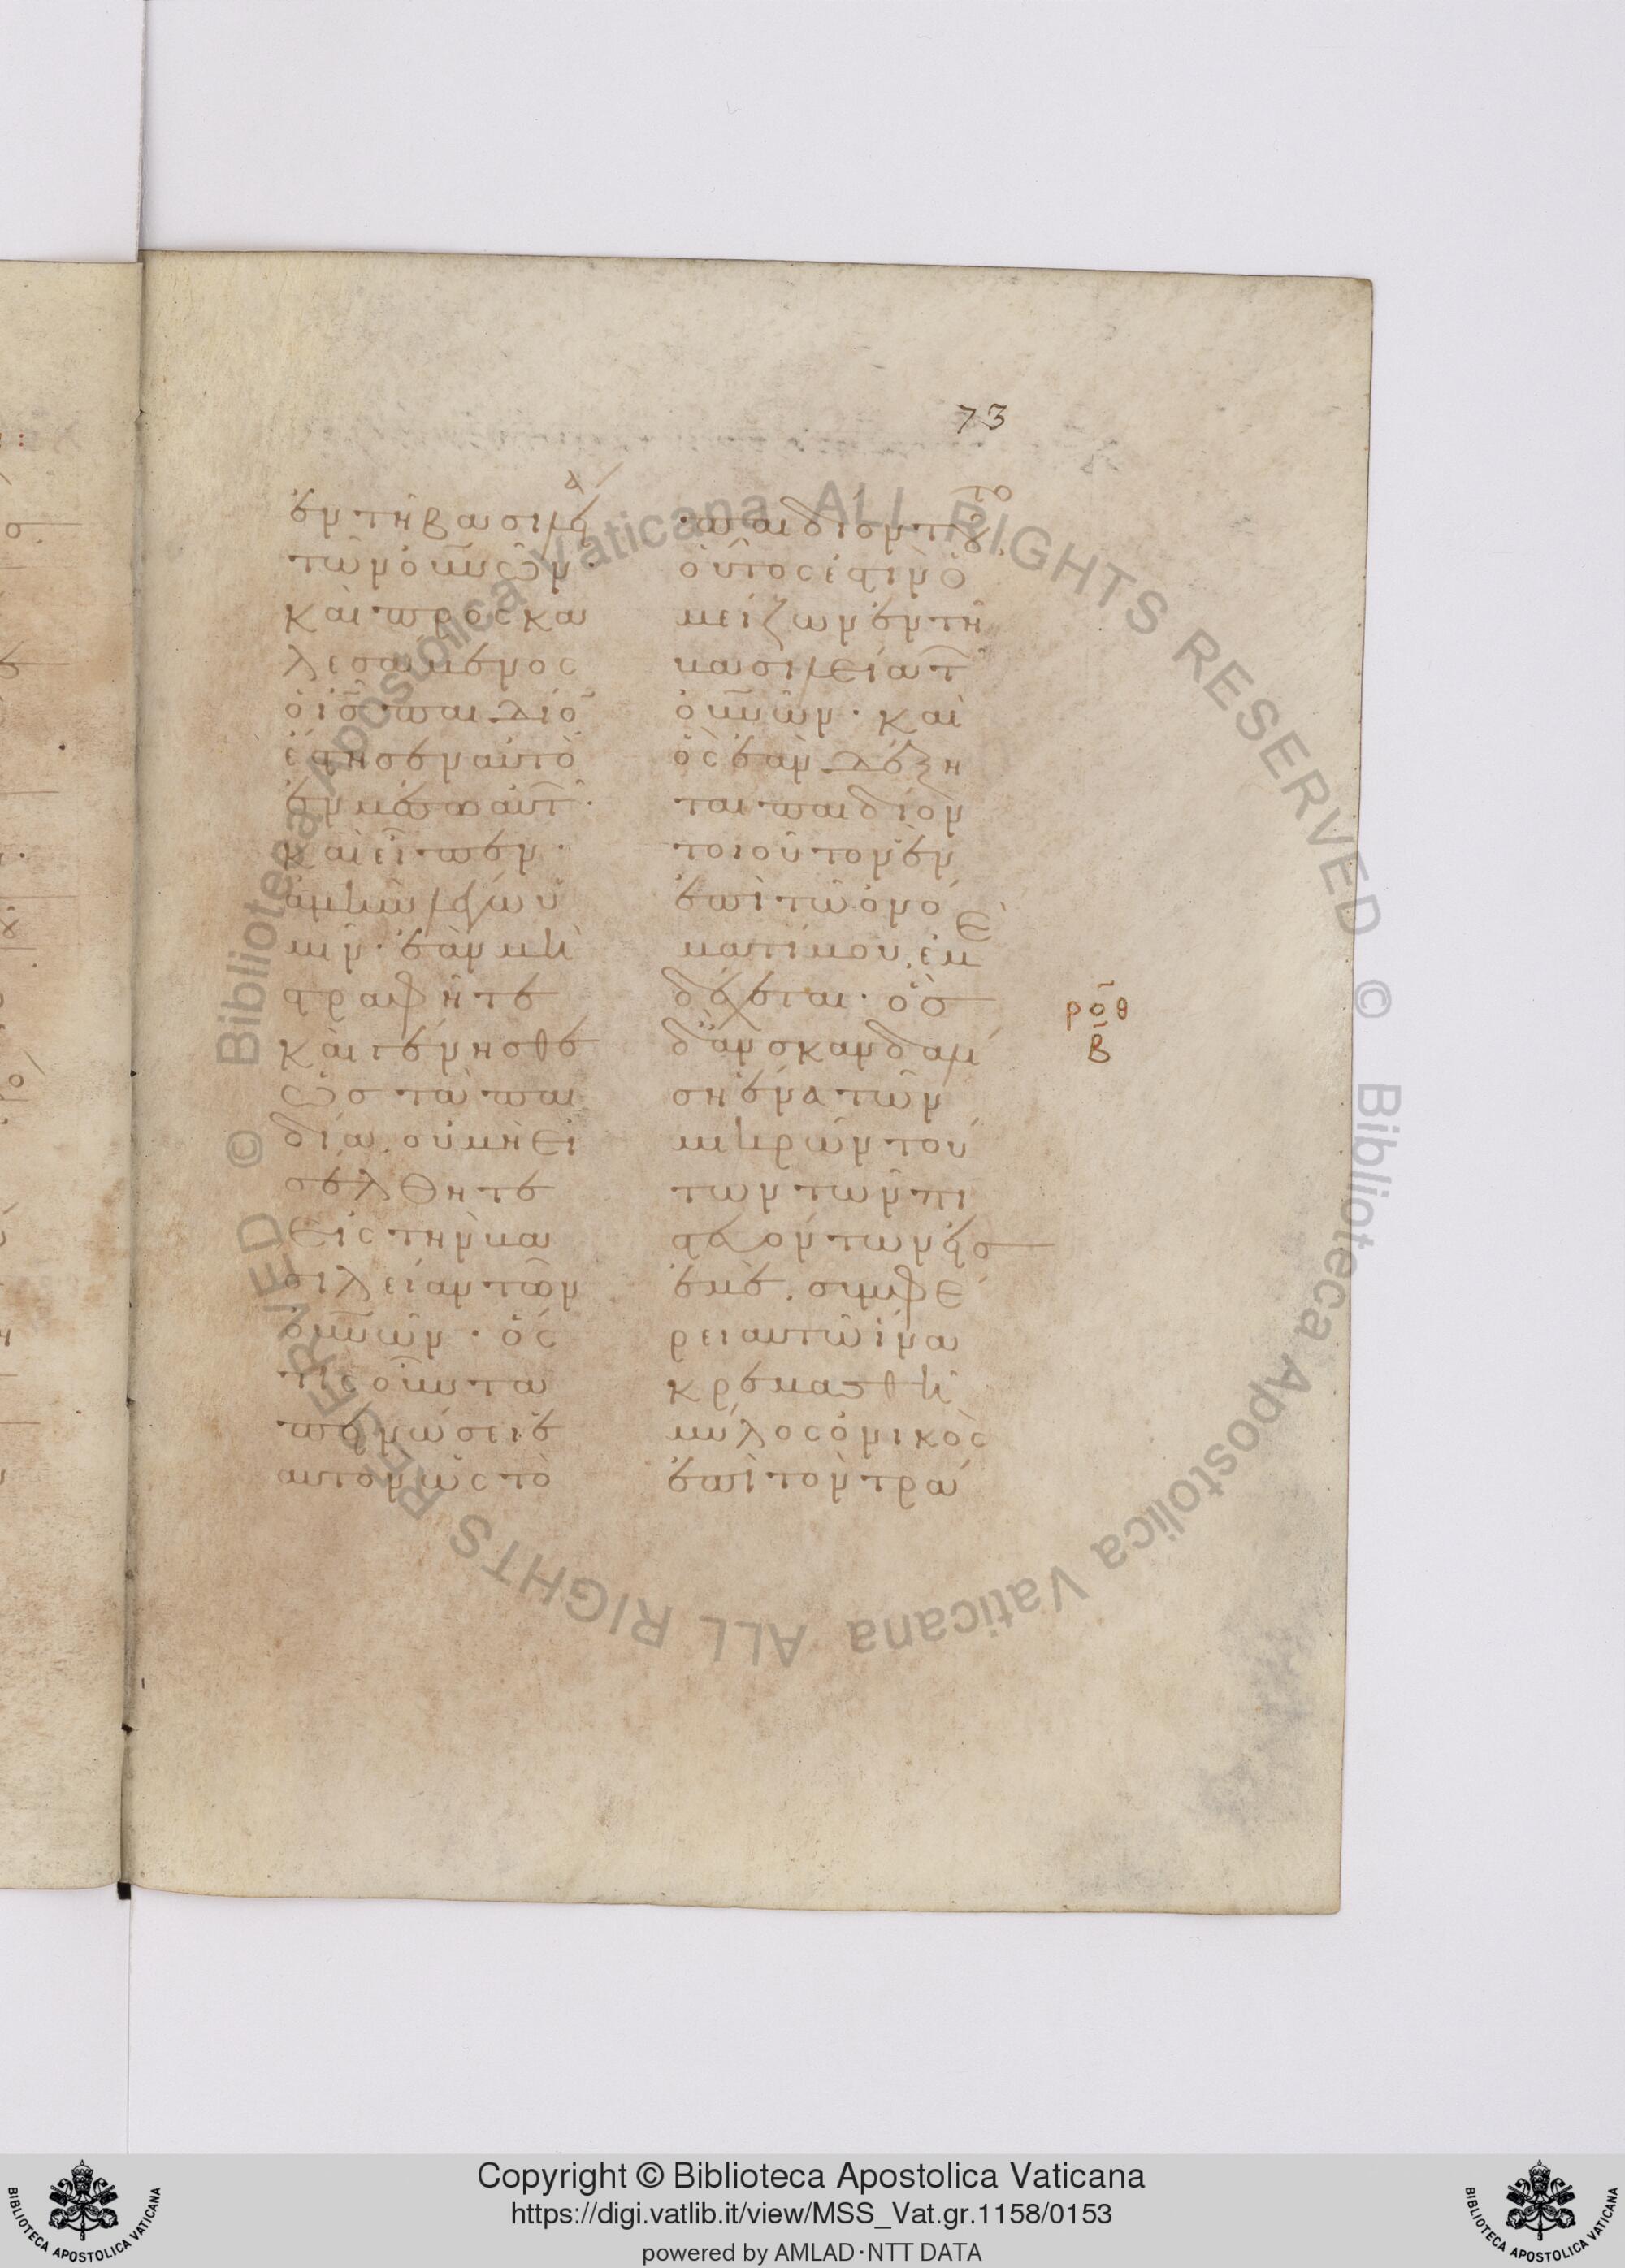 73
ἐν τῆ βασιλεία
τῶν οὐνῶν·
καὶ προσκα
λεσάμενος
ὁ ισ παιδίο
ἔστησεν αὐτὸ
ἐν μέσω αὐτ·
καὶ εἶπεν·
ἀμὴν λέγω ὑ
μῖν· ἐὰν μὴ
στραφῆτε
καὶ γένησθε
ὡσ τὰ παι
δία, οὐ μὴ εἰ
σέλθητε
εἰς τὴν βα
σιλείαν τῶν
οὐνῶν· ὅς
τις οὖν τα
πεινώσει ἑ
αυτὸν ὡς τὸ
παιδίον τοῦτο
οὗτος ἐστιν ὁ
μείζων ἐν τῆ
βασιλεία τ
οὐνῶν· καὶ
ὃς ἐὰν δέξη
ται παιδίον
τοιοῦτον ἓν
ἐπὶ τῶ ὀνό
ματί μου, ἐμὲ
δέχεται· ὃσ
δ' ἂν σκανδαλί
ση ἕνα τῶν
μικρῶν τού
των τῶν πι
στευόντων εἰσ
ἐμὲ, συμφέ
ρει αυτῶ ἵνα
κρεμασθῆ
μύλος ὀνικὸς
ἐπὶ τὸν τρά
ροθ
β
Copyright © Biblioteca Apostolica Vaticana
https://digi.vatlib.it/view/MSS_Vat.gr.1158/0153
powered by AMLAD·NTT DATA
BIBLIOTECA APOSTOLICA VATICANA
BIBLIOTECA APOSTOLICA VATICANA
© Biblioteca Apostolica Vaticana ALL RIGHTS RESERVED
© Biblioteca Apostolica Vaticana ALL RIGHTS RESERVED